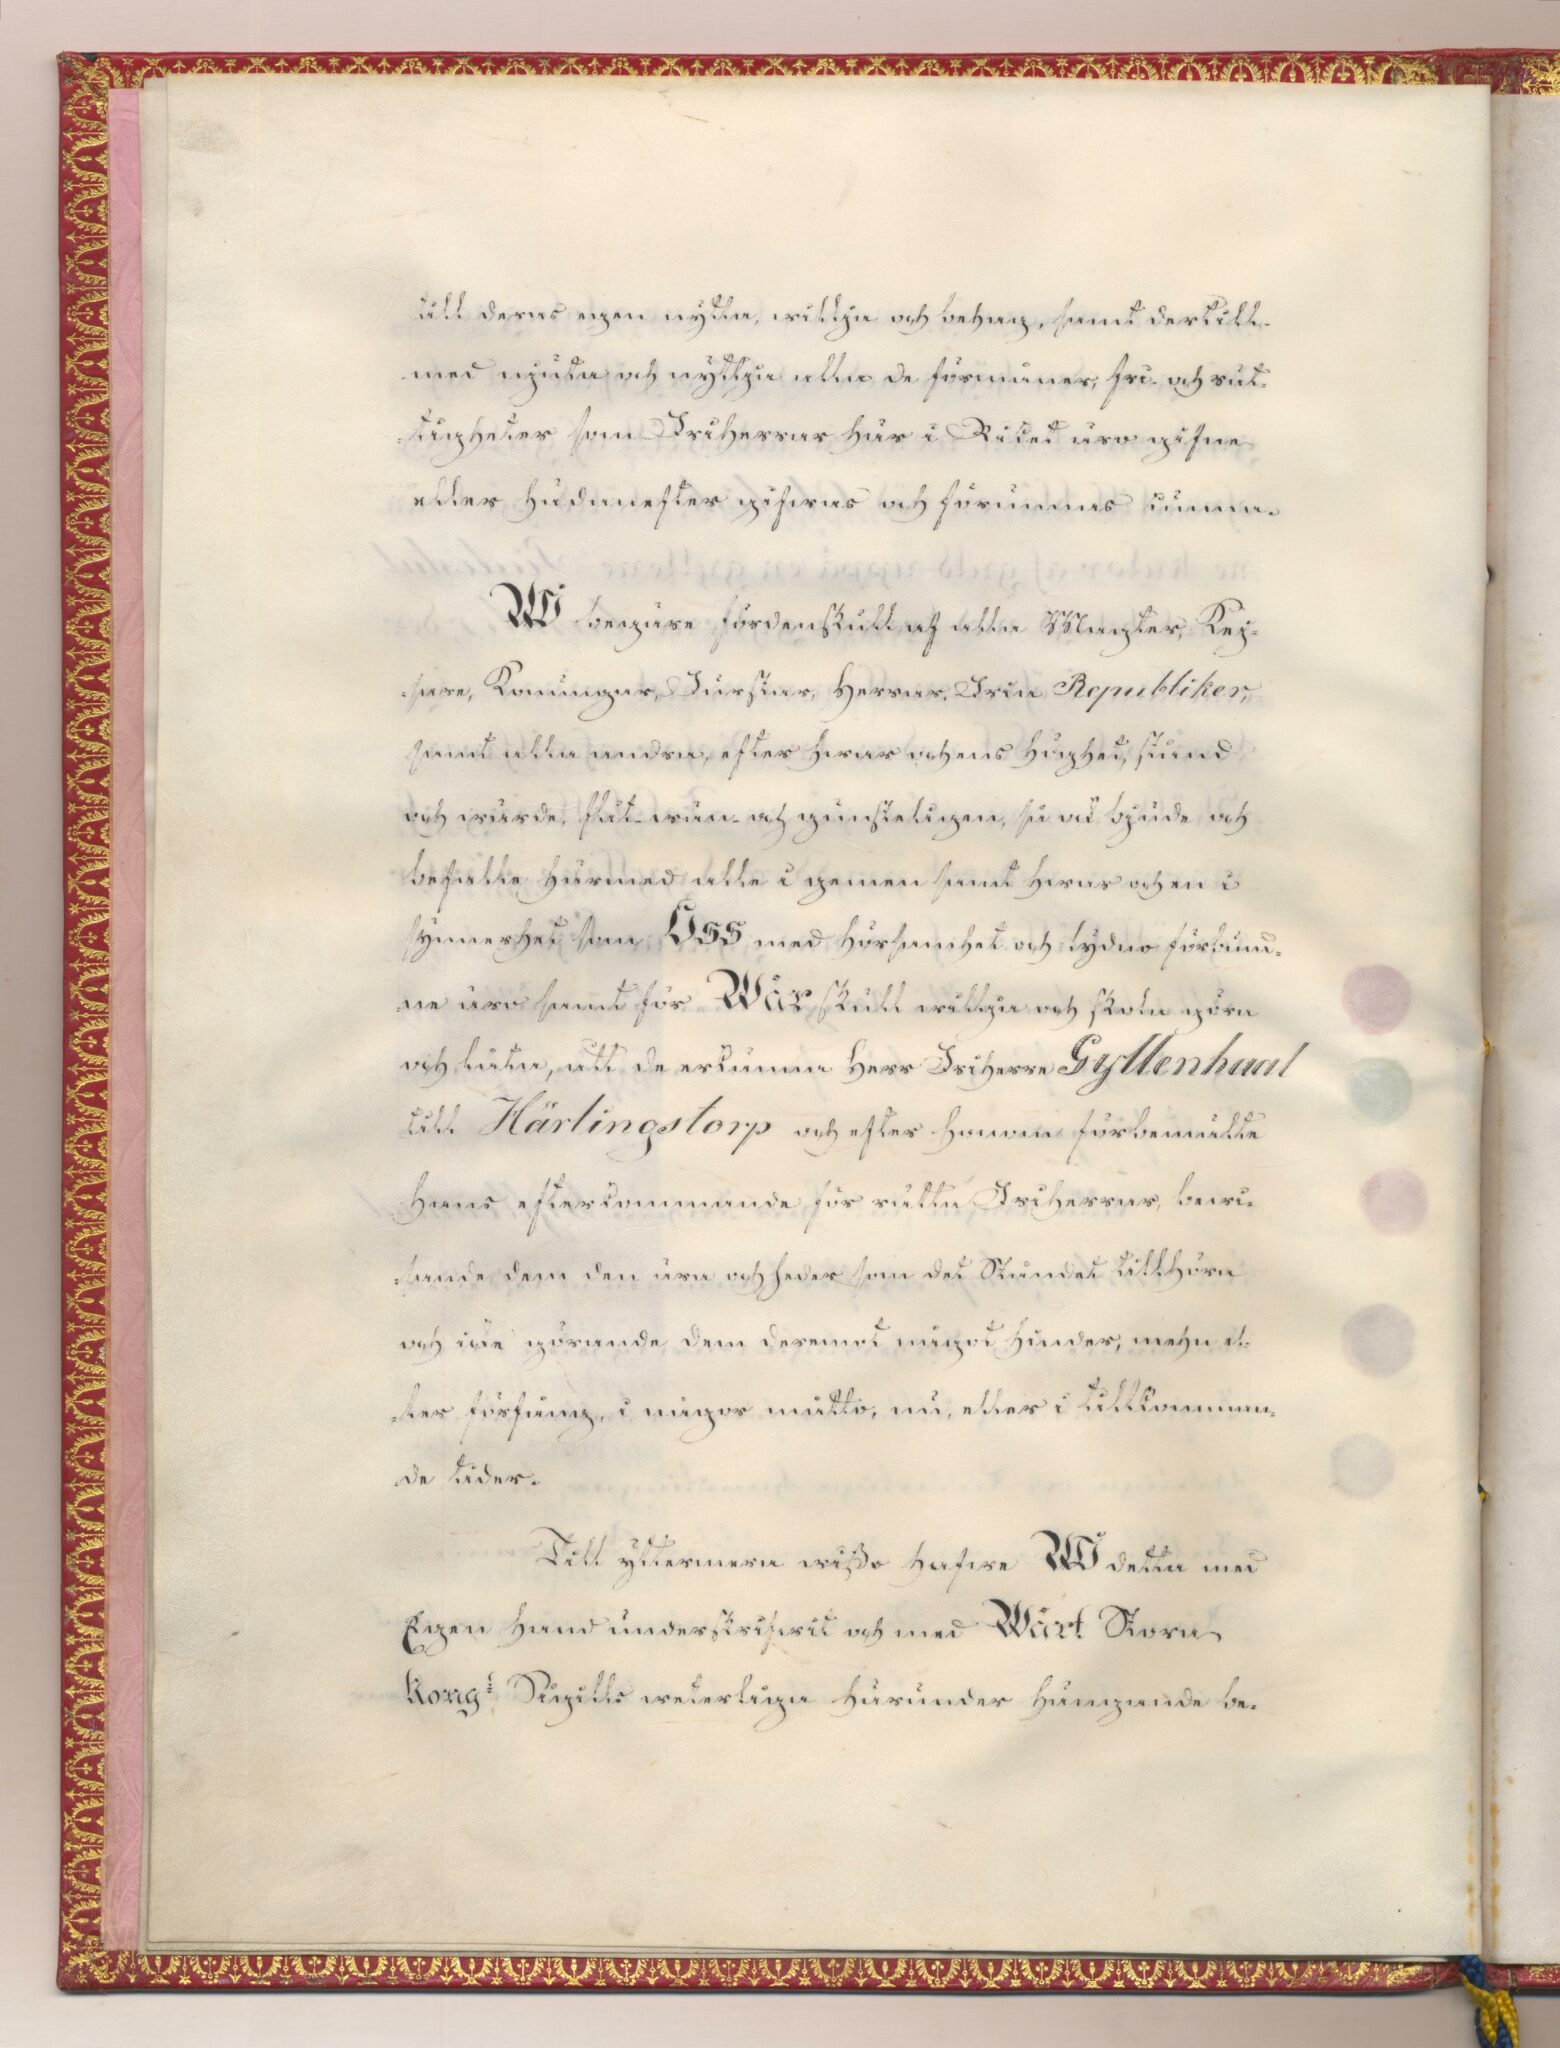 till deras egen nytta, willja och behag, samt dertill-
med njuta och nyttja alla de förmåner, fri- och rät-
tigheter som Friherrar här i Riket äro gifne
eller hädanefter gifwas och förunnas kunna.
Wi begäre fördenskull af alla Magter, Kej-
sare, Konungar, Furstar, Herrar, Fria Republiker,
samt alla andra, efter hwar och ens höghet, stånd
och wärde, flit- wän- och gunsteligen, så ock bjude och
befalle härmed alle i gemen samt hwar och en i
synnerhet som Oss med hörsamhet och lydno förbund-
ne äro samt för Wår skull willja och skola göra
och låta, att de erkänna Herr Friherre Gyllenhaal
till Härlingstorp och efter honom förbemälte
hans efterkommande för rätta Friherrar, bewi-
sande dem den ära och heder som det Ståndet tillhöra
och icke görande dem deremot något hinder, mehn el-
ler förfång, i någor måtto, nu, eller i tillkomman-
de tider.
Till yttermera wißo hafwe Wi detta med
Egen hand underskrifwit och med Wårt Stora
Kong: Sigills weterliga härunder hängande be-